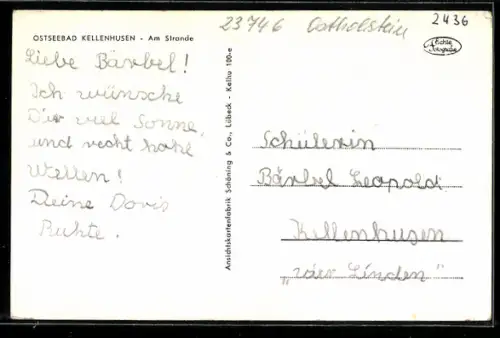 23746 Ostholstein 2436
OSTSEEBAD KELLENHUSEN - Am Strande
Echte Fotografie
Liebe Bärbel!
Ich wünsche
Dir viel Sonne,
und recht hohe
Wellen!
Deine Doris
Ruhte.
Ansichtskartenfabrik Schöning & Co., Lübeck - Kelhu 100-e
Schülerin
Bärbel Leopold
Kellenhusen
„vier Linden"